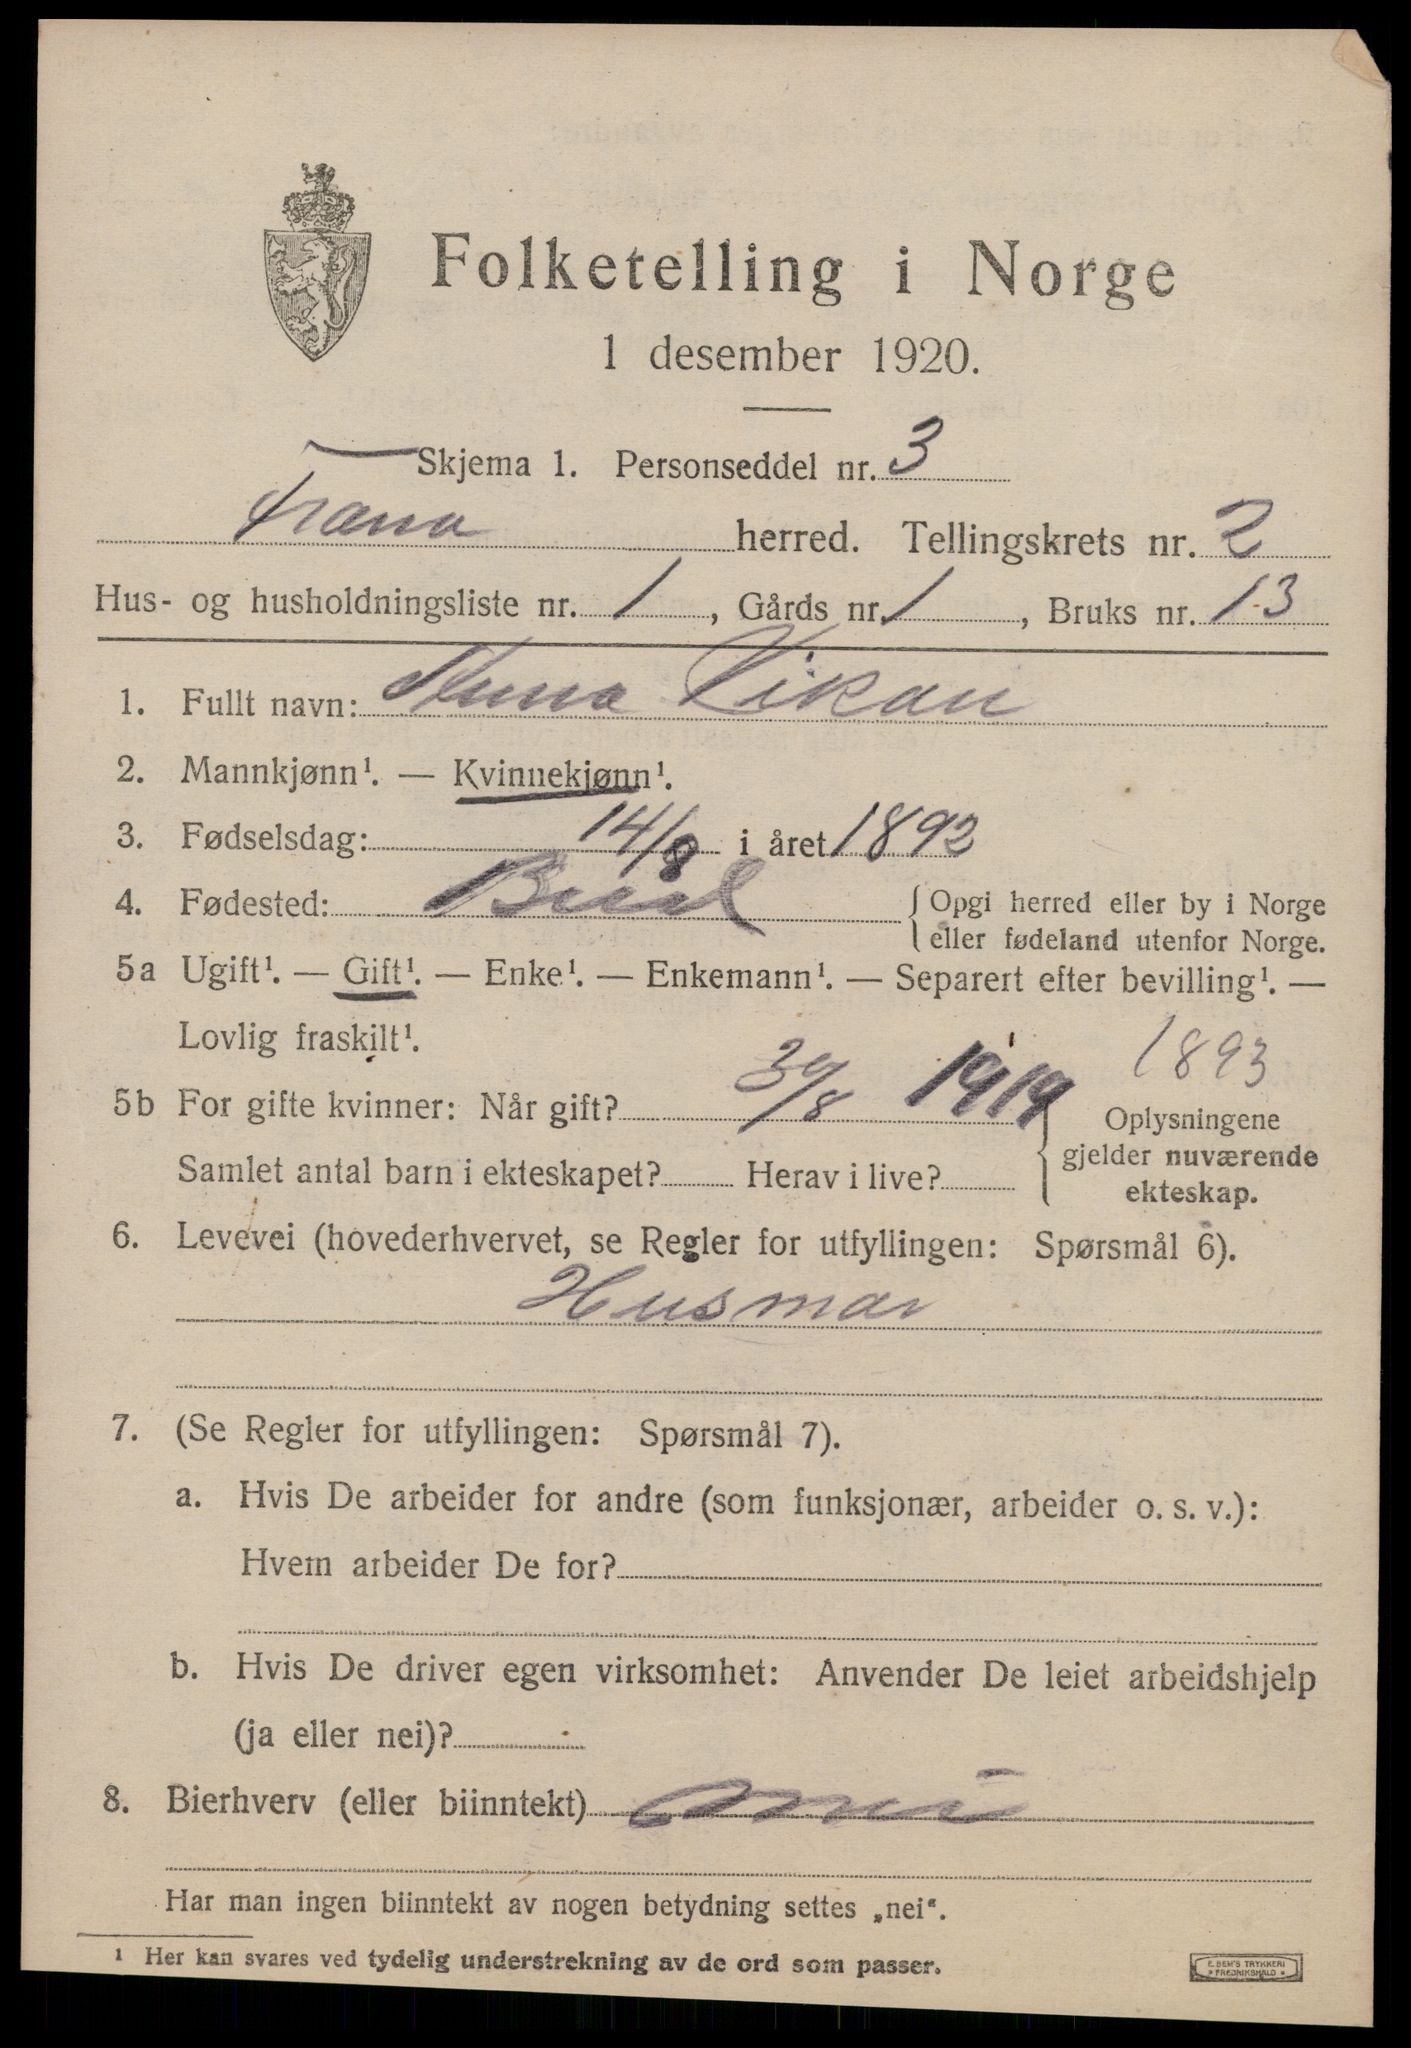 Folketelling i Norge
1 desember 1920.
Skjema 1. Personseddel nr. 3
Fræna herred. Tellingskrets nr. 2
Hus- og husholdningsliste nr. 1, Gårds nr. 1, Bruks nr. 13
1. Fullt navn: Anna Vikan
2. Mannkjønn¹. — Kvinnekjønn¹.
3. Fødselsdag: 14/8 i året 1893
4. Fødested: Bud { Opgi herred eller by i Norge
eller fødeland utenfor Norge.
5a Ugift¹. — Gift¹. — Enke¹. — Enkemann¹. — Separert efter bevilling¹. —
Lovlig fraskilt¹.
1893
5b For gifte kvinner: Når gift? 30/8 1919
Samlet antal barn i ekteskapet? Herav i live?
{ Oplysningene
gjelder nuværende
ekteskap.
6. Levevei (hovederhvervet, se Regler for utfyllingen: Spørsmål 6).
Husmor
7. (Se Regler for utfyllingen: Spørsmål 7).
a. Hvis De arbeider for andre (som funksjonær, arbeider o. s. v.):
Hvem arbeider De for?
b. Hvis De driver egen virksomhet: Anvender De leiet arbeidshjelp
(ja eller nei)?
8. Bierhverv (eller biinntekt)
Har man ingen biinntekt av nogen betydning settes „nei“.
¹ Her kan svares ved tydelig understrekning av de ord som passer.
E. SEM'S TRYKKERI
* FREDRIKSHALD *